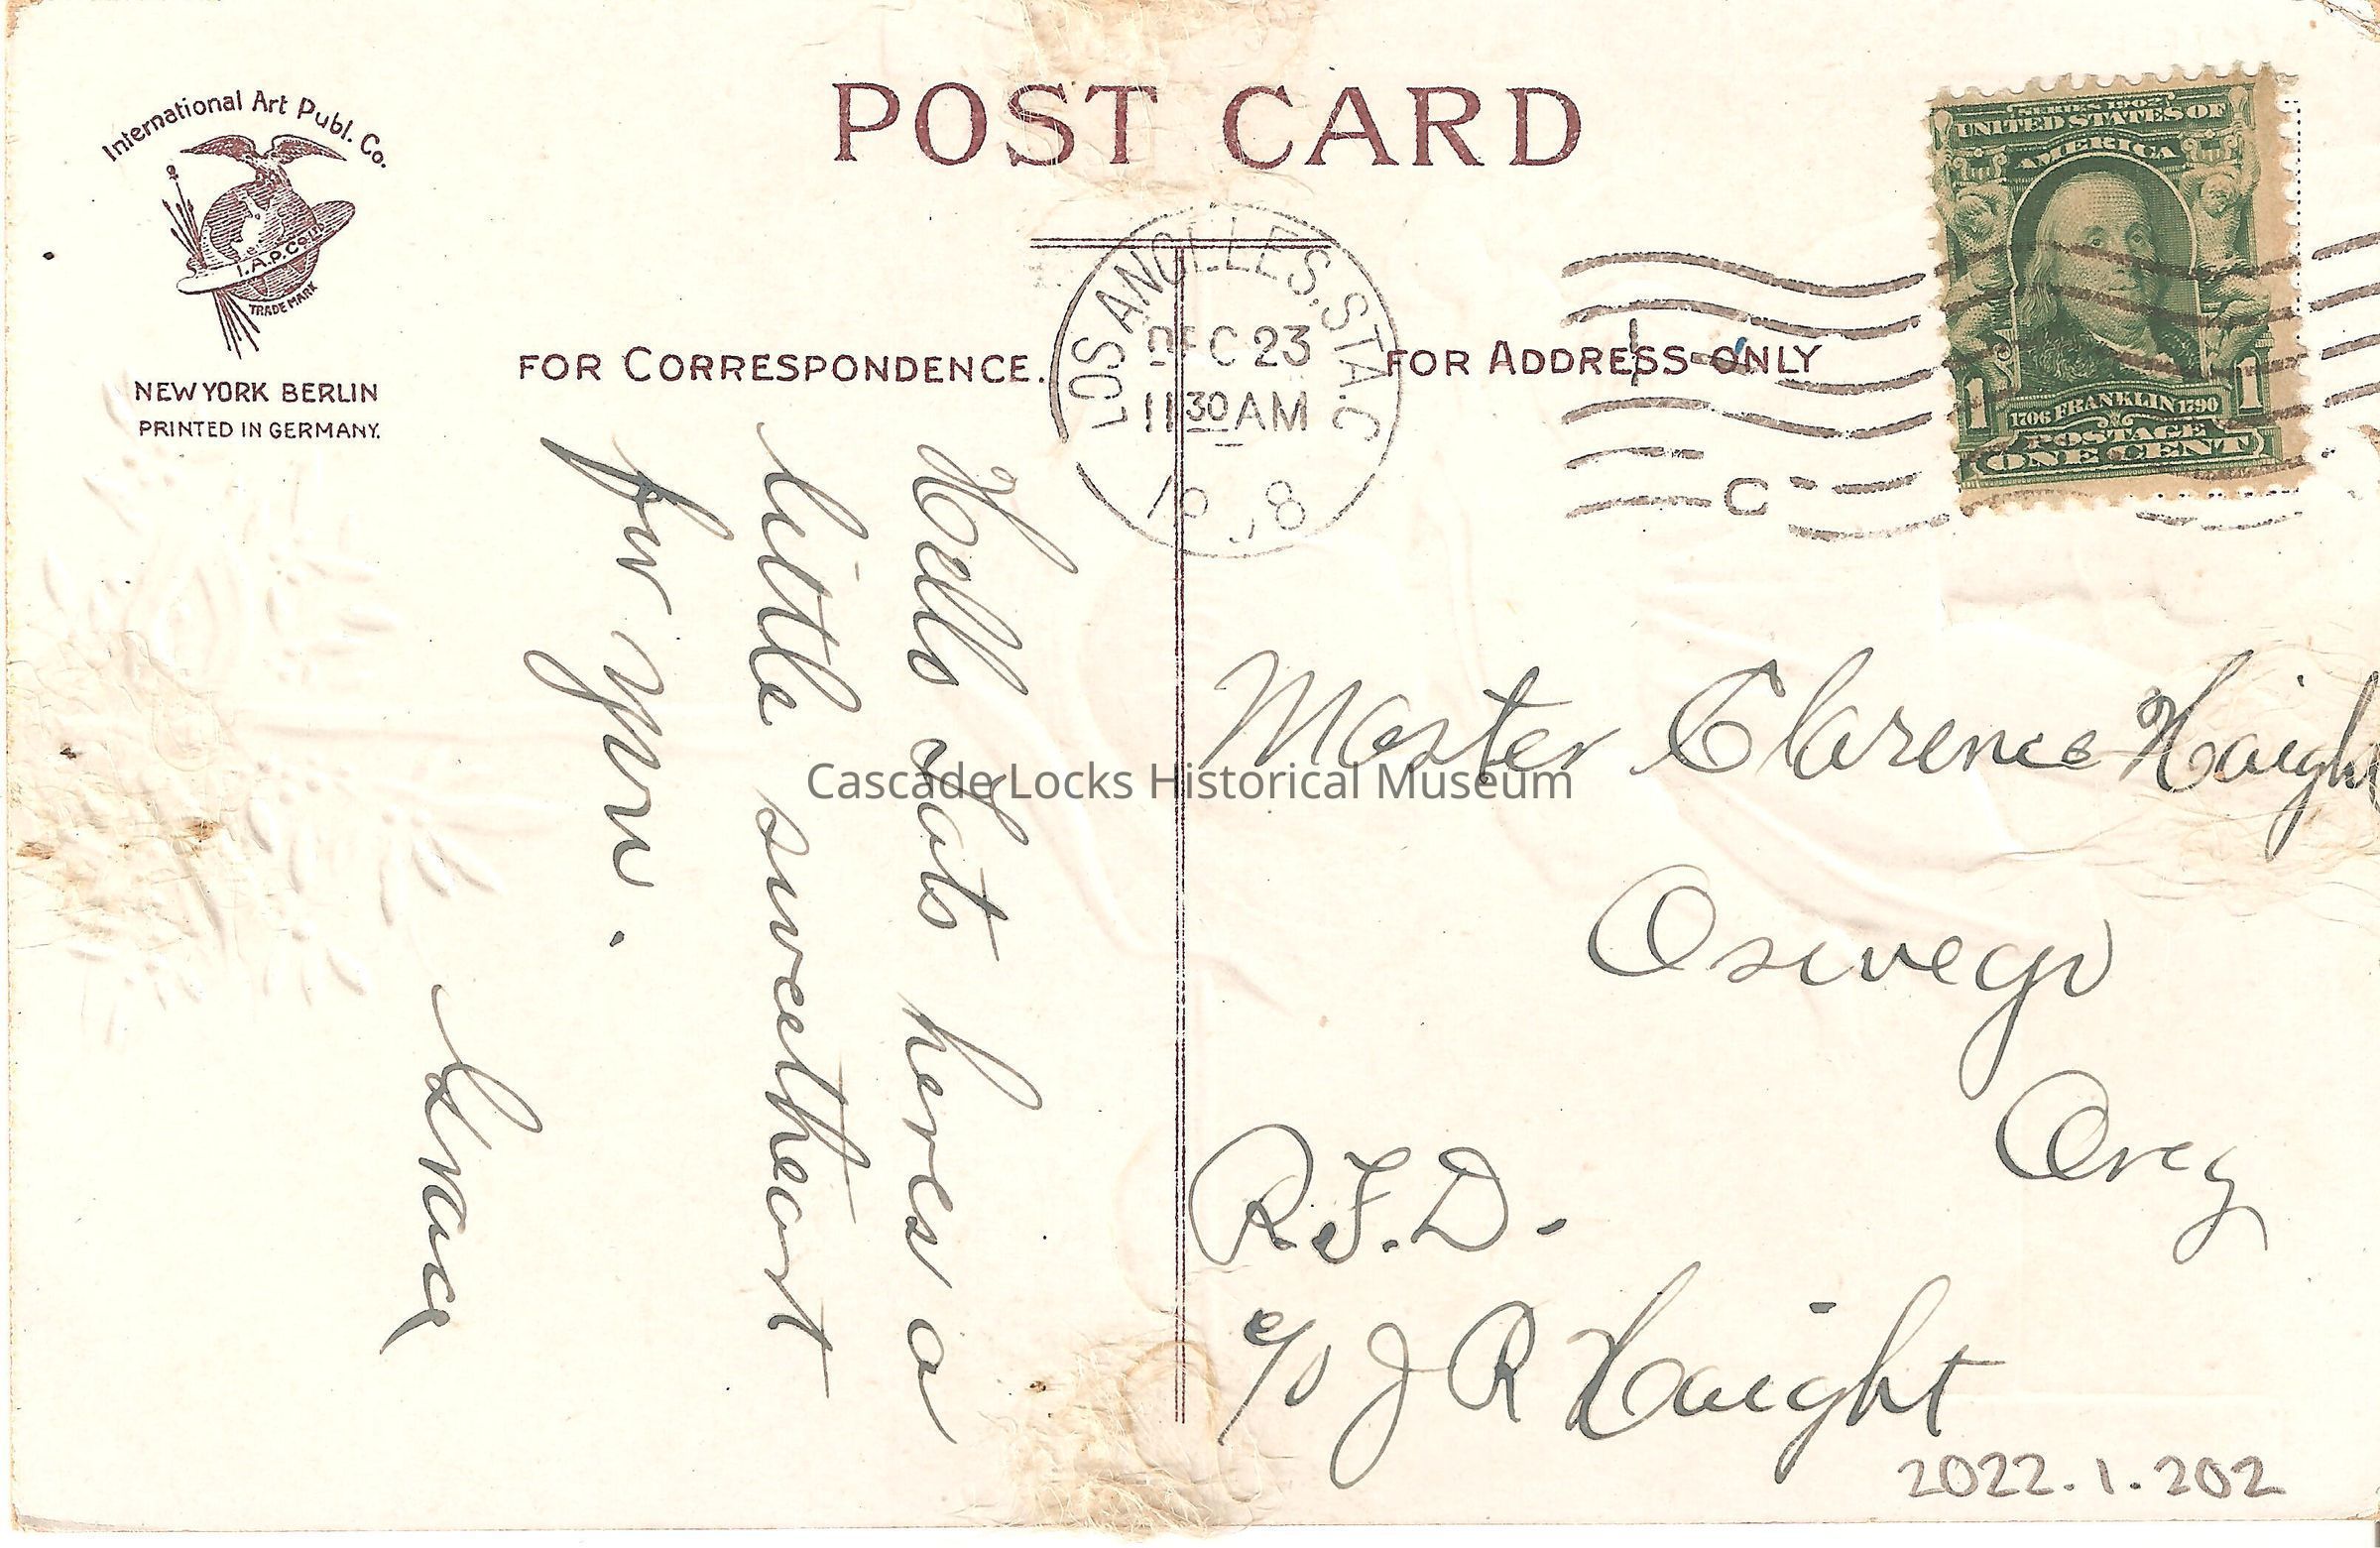 POST CARD
International Art Publ. Co.
I.A.P.Co.
TRADE MARK
NEW YORK BERLIN
PRINTED IN GERMANY.
FOR CORRESPONDENCE.
FOR ADDRESS ONLY
LOS ANGELES, STA. C
DEC 23
11 30 AM
C
SERIES 1902
UNITED STATES OF
AMERICA
1706 FRANKLIN 1790
POSTAGE
1 1
ONE CENT
Hello Lots heres a
little sweetheart
for you.
Grace
Master Clarence Haight
Oswego
Oreg
R.F.D.
c/o J R Haight
2022.1.202
Cascade Locks Historical Museum